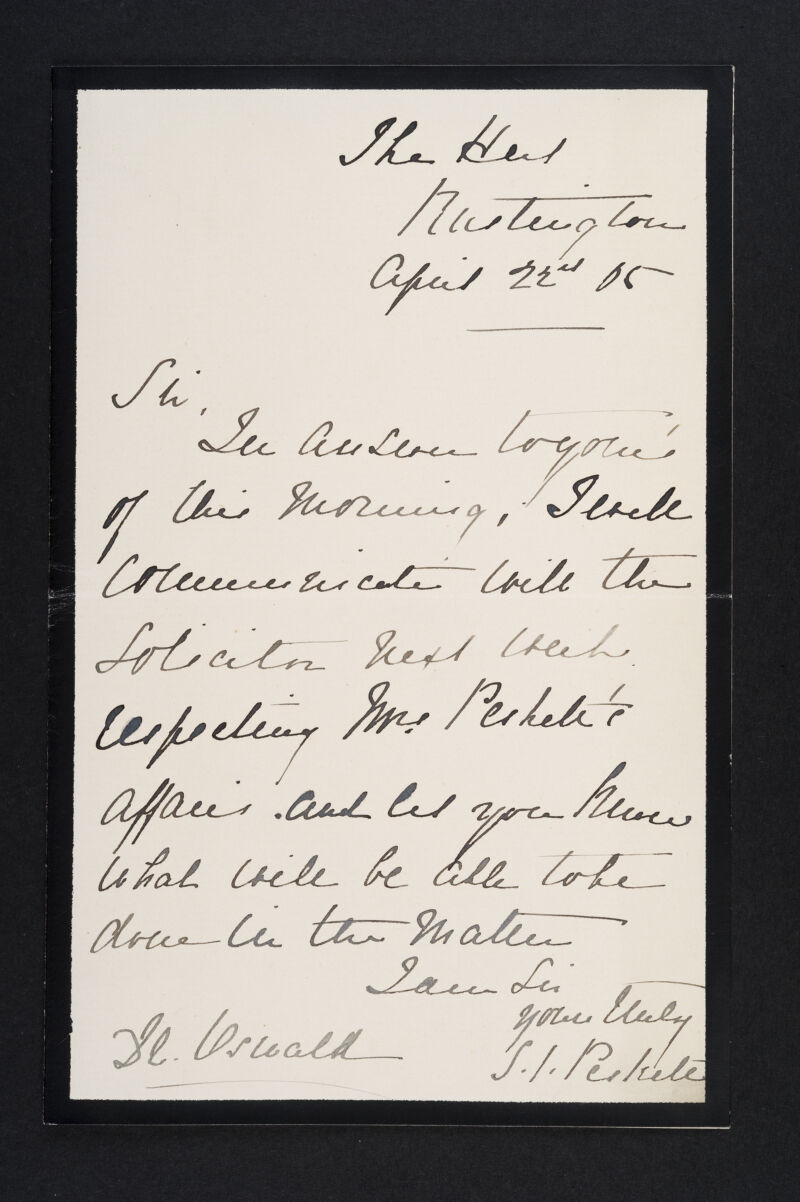 The Hut
Rustington
April 22nd 05
Sir,
In answer to your's
of this Morning, I will
Communicate with the
Solicitor next week
respecting Mrs. Peskett's
affairs. and let you Know
what will be able to be
done in the Matter
I am Sir
yours truly
S. J. Peskett
Dr. Oswald